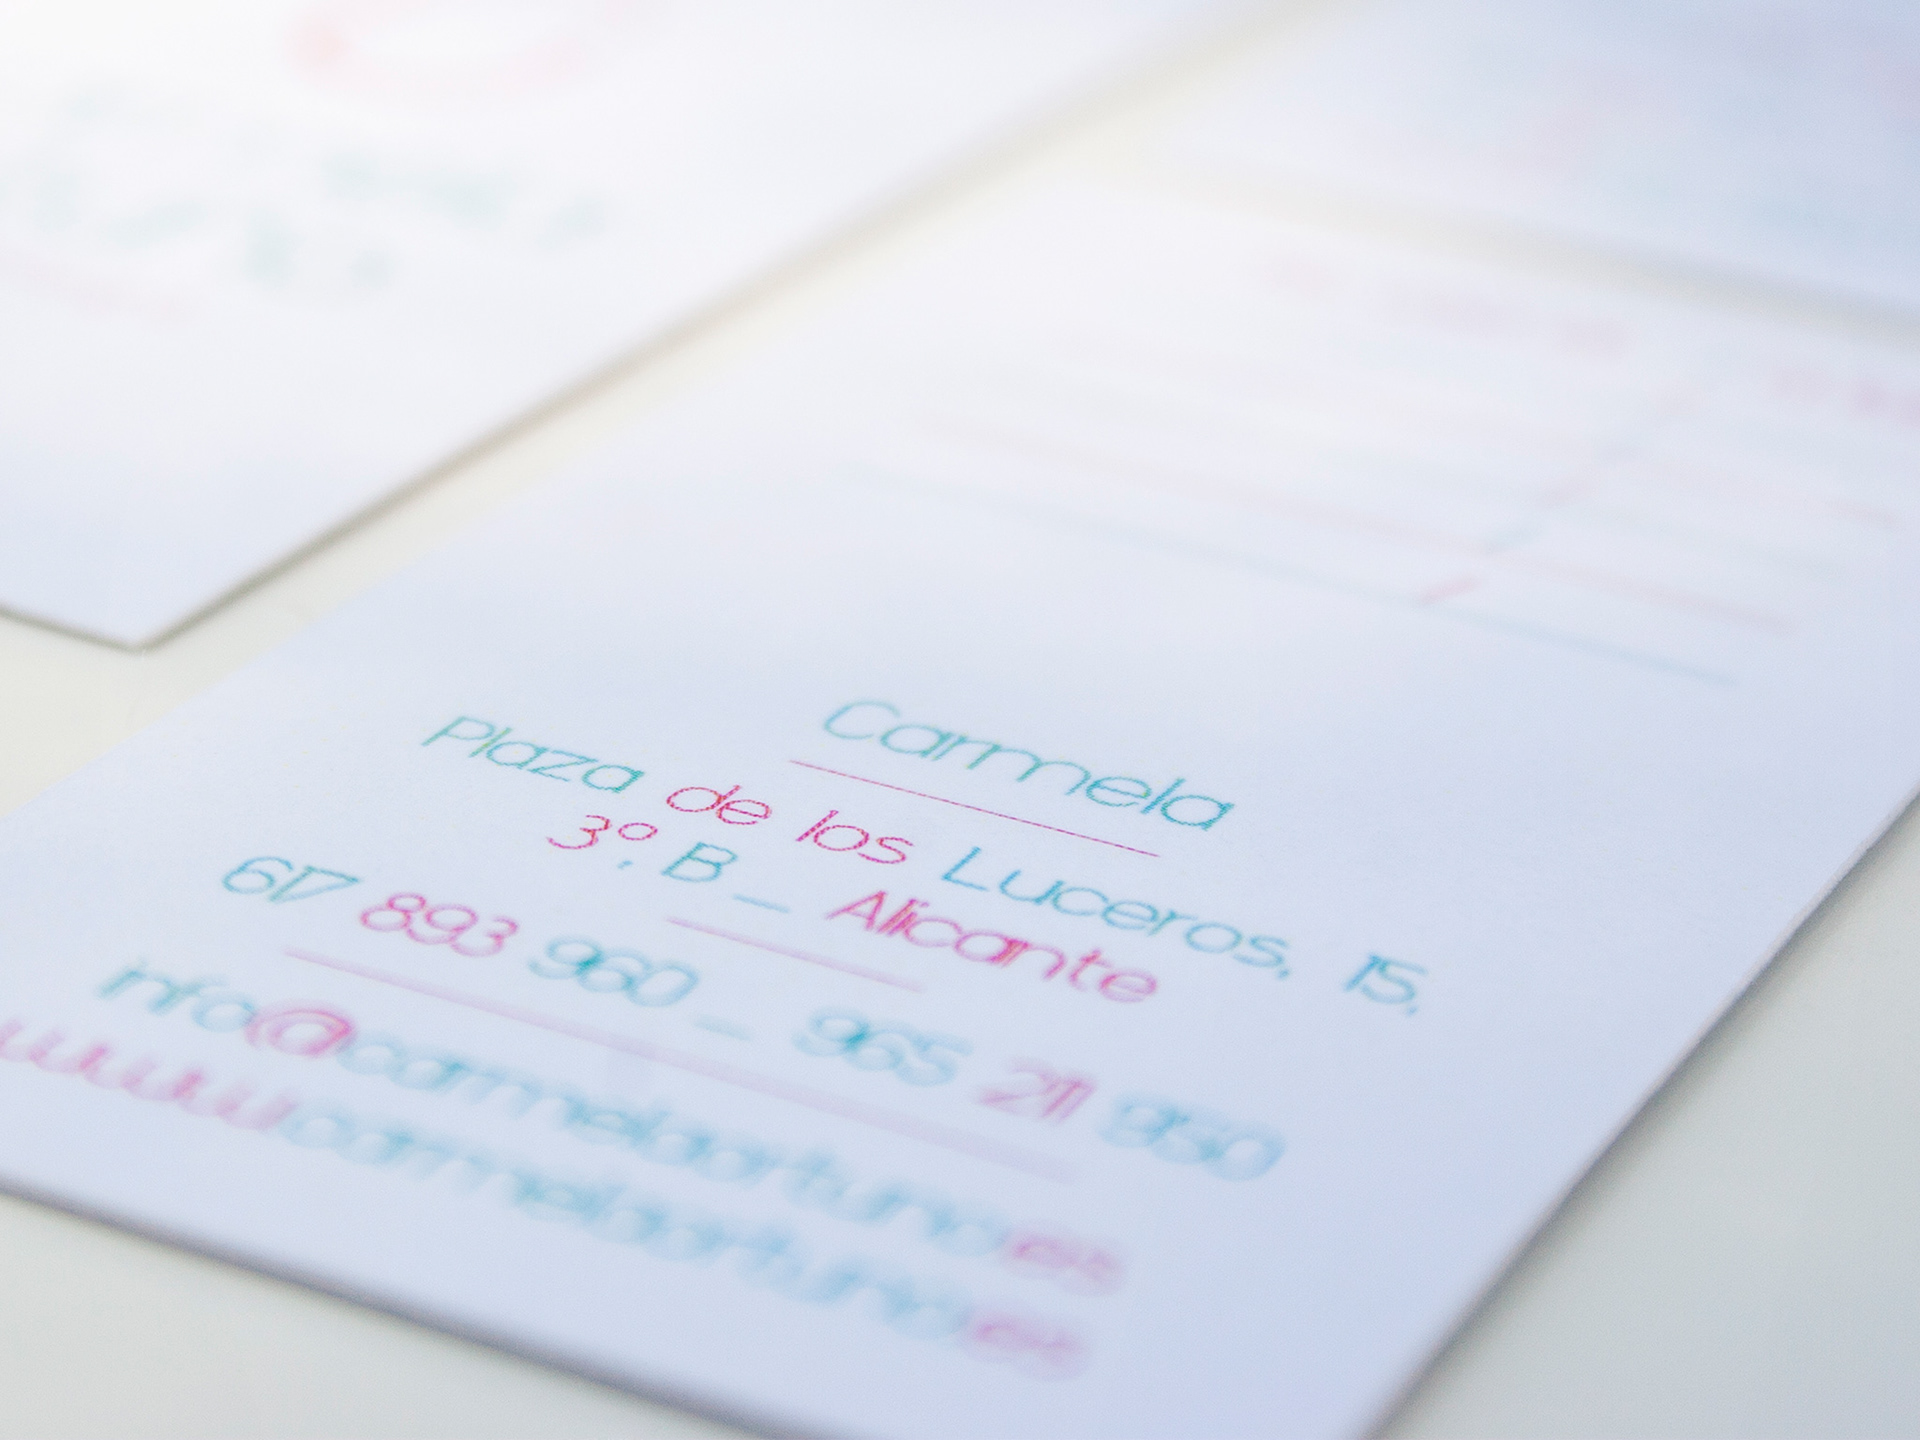 Carmela
Plaza de los Luceros, 15,
3º, B – Alicante
617 893 960 – 965 211 950
info@carmelaortuno.es
www.carmelaortuno.es